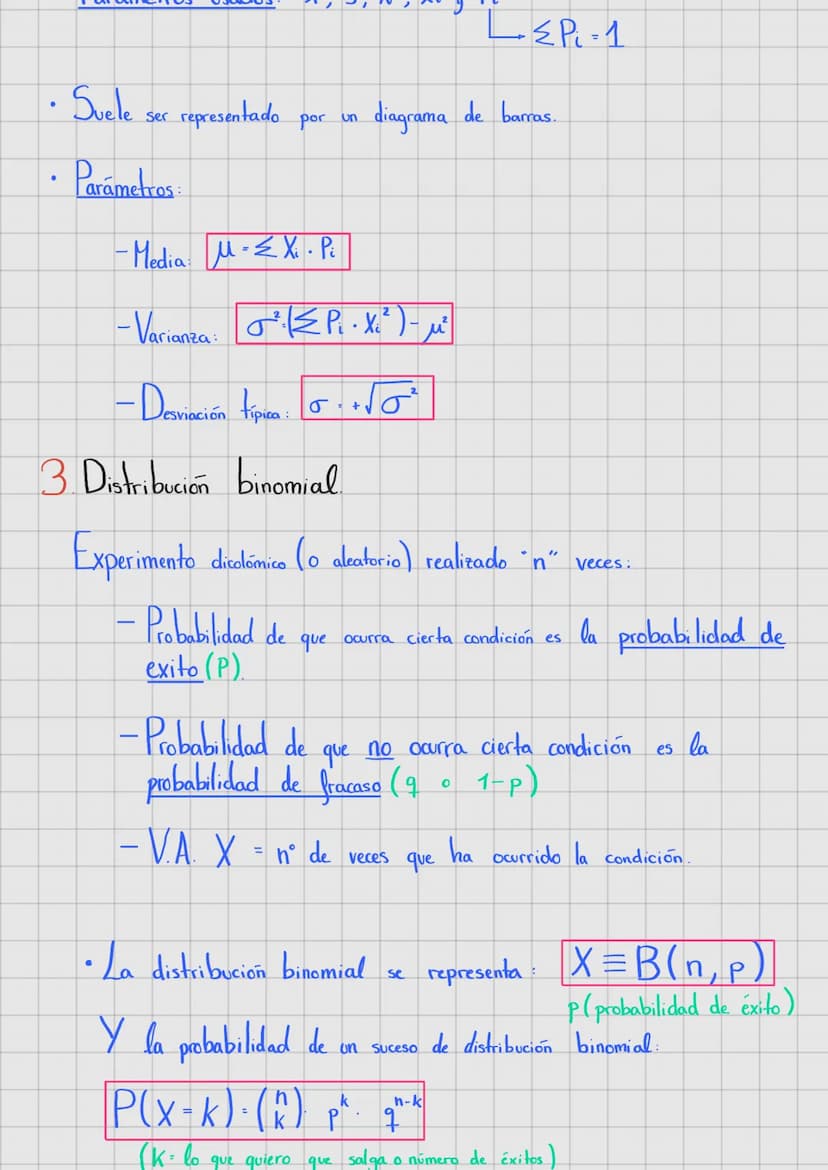 ΣPi = 1
• Suele ser representado por un diagrama de barras.
• Parámetros:
- Media: μ = Σ Xi · Pi
- Varianza: σ² = (Σ Pi · Xi²) - μ²
- Desviación típica: σ = +√σ²
3. Distribución binomial.
Experimento dicolómico (o aleatorio) realizado "n" veces:
- Probabilidad de que ocurra cierta condición es la probabilidad de
exito (P).
- Probabilidad de que no ocurra cierta condición es la
probabilidad de fracaso (q o 1-p)
- V.A. X = nº de veces que ha ocurrido la condición.
• La distribución binomial se representa: X ≡ B(n, p)
p (probabilidad de éxito)
Y la probabilidad de un suceso de distribución binomial:
P(X = k) = (n k) · p^k · q^n-k
(K = lo que quiero que salga o número de éxitos)